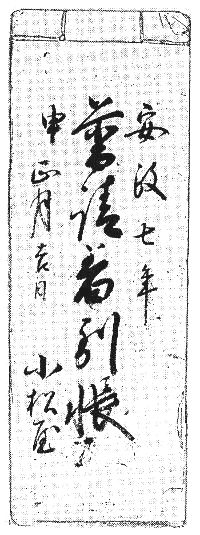 安政七年
萬請着到帳
申 正月吉日
小松屋